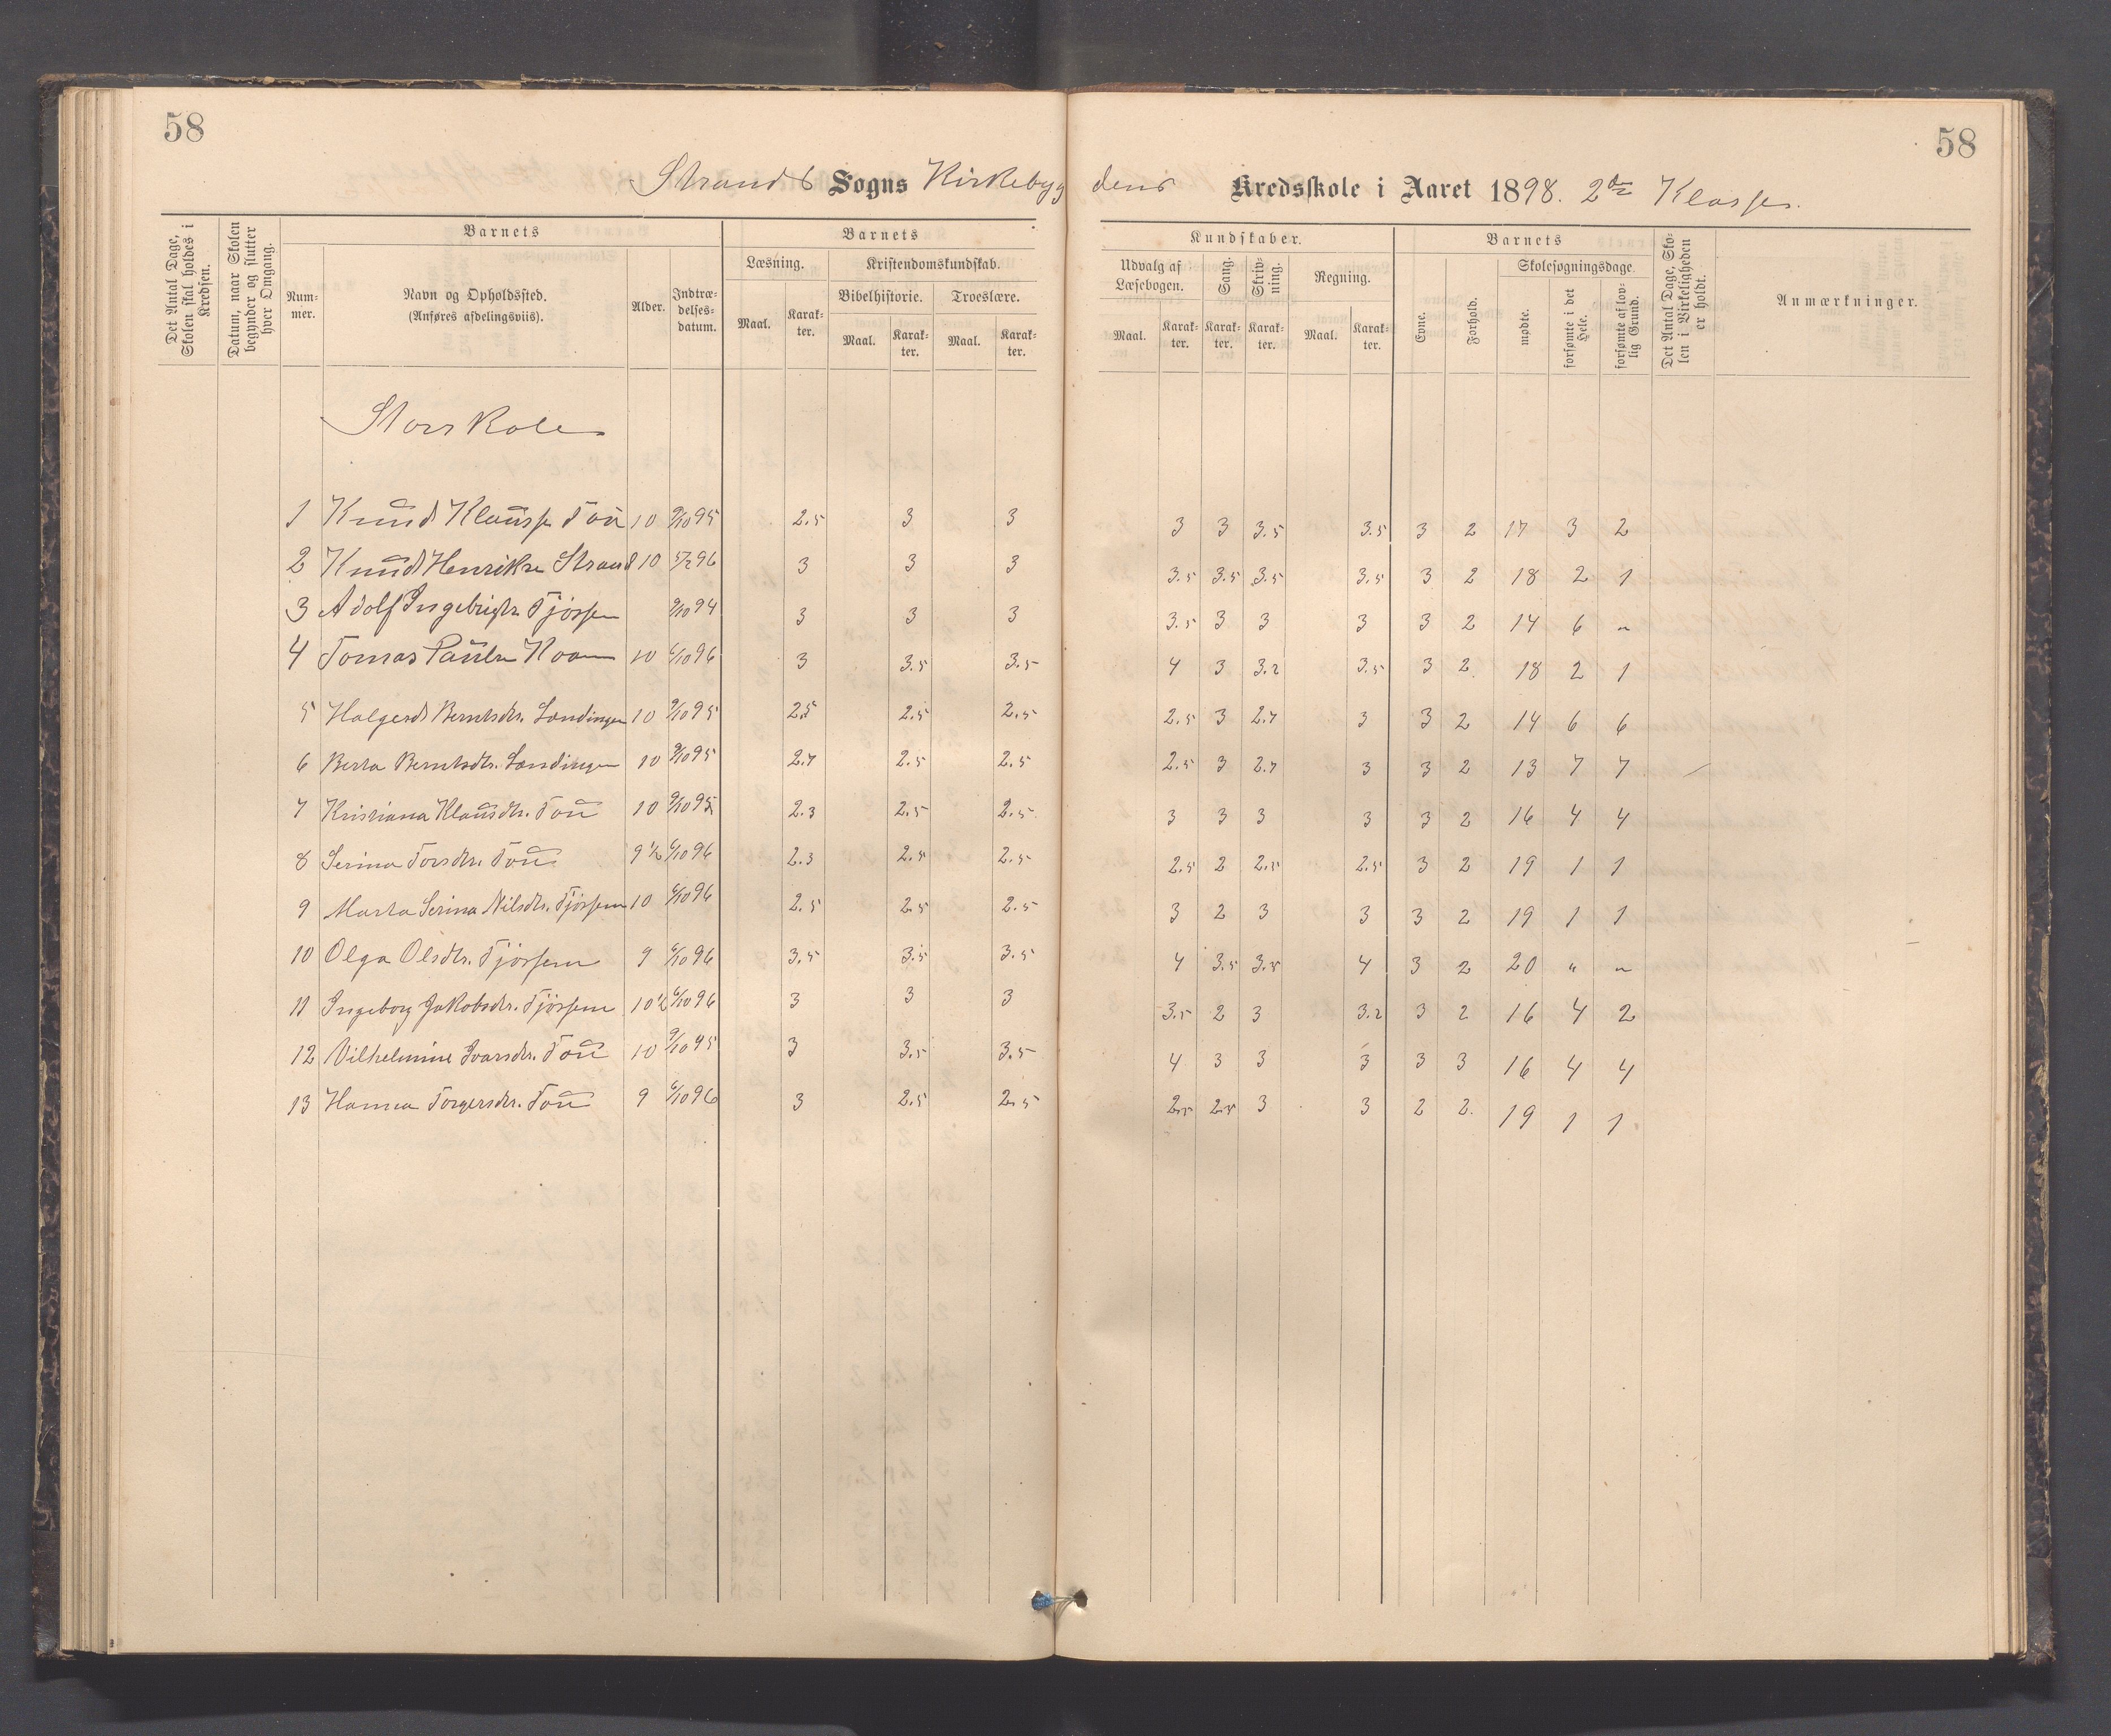 58
58
Strands Sogns Kirkebyg dens Kredsskole i Aaret 1898. 2de Klasse.
Det Antal Dage, Skolen skal holdes i Kredsen.
Datum, naar Skolen begynder og slutter hver Omgang.
Barnets
Num-mer.
Navn og Opholdssted. (Anføres afdelingsviis).
Alder.
Indtræ-delses-datum.
Barnets
Læsning.
Maal.
Karak-ter.
Kristendomskundskab.
Bibelhistorie.
Maal.
Karak-ter.
Troeslære.
Maal.
Karak-ter.
Kundskaber.
Udvalg af Læsebogen.
Maal.
Karak-ter.
Sang.
Karak-ter.
Skriv-ning.
Karak-ter.
Regning.
Maal.
Karak-ter.
Barnets
Evne.
Forhold.
Skolesøgningsdage.
mødte.
forsømte i det Hele.
forsømte af lov-lig Grund.
Det Antal Dage, Sko-len i Virkeligheden er holdt.
Anmærkninger.
Storskole
1 Knud Klaussn Tou 10 9/10 95 2.5 3 3 3 3 3.5 3.5 3 2 17 3 2
2 Knud Henriksn Strand 10 5/2 96 3 3 3 3.5 3.5 3.5 3.5 3 2 18 2 1
3 Adolf Ingebrigtsn Tjössem 9/10 94 3 3 3 3.5 3 3 3 3 2 14 6 "
4 Tomas Paulsn 10 6/10 96 3 3.5 3.5 4 3 3.2 3.5 3 2 18 2 1
5 Holgerd Berntsdtr. Lændingen 10 9/10 95 2.5 2.5 2.5 2.5 3 2.7 3 3 2 14 6 6
6 Berta Berntsdtr. Lændingen 10 9/10 95 2.7 2.5 2.5 2.5 3 2.7 3 3 2 13 7 7
7 Kristiana Klausdtr. Tou 10 9/10 95 2.3 2.5 2.5 3 3 3 3 3 2 16 4 4
8 Serina Torsdtr. Tou 9 1/2 6/10 96 2.3 2.5 2.5 2.5 2 2.5 2.5 3 2 19 1 1
9 Marta Serina Nilsdtr. Tjössem 10 6/10 96 2.5 2.5 2.5 3 2 3 3 3 2 19 1 1
10 Olga Olsdtr. Tjössem 9 6/10 96 3.5 3.5 3.5 4 3.5 3.5 4 3 2 20 " "
11 Ingeborg Jakobsdtr. Tjössem 10 1/2 6/10 96 3 3 3 3.5 2 3 3.2 3 2 16 4 2
12 Vilhelmine Ivarsdtr. Tou 10 9/10 95 3 3.5 3.5 4 3 3 3 3 3 16 4 4
13 Hanna Torgersdtr. Tou 9 6/10 96 3 2.5 2.5 2.5 2.5 3 3 2 2 19 1 1